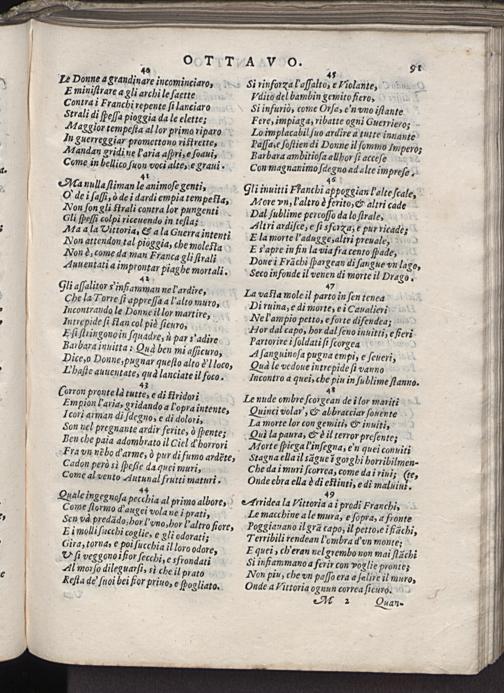 OTTAVO.
91
40
Le Donne a grandinare incominciaro,
E ministrare a gli archi le saette
Contra i Franchi repente si lanciaro
Strali di spessa pioggia da le elette;
Maggior tempesta al lor primo riparo
In guerreggiar promettono ristrette,
Mandan gridi ne l'aria aspri, e soaui,
Come in bellico suon voci alte, e graui.
41
Ma nulla stiman le animose genti,
O' de i sassi, ò de i dardi empia tempesta,
Non son gli strali contra lor pungenti
Gli spessi colpi ricevendo in testa;
Ma a la Vittoria, & a la Guerra intenti
Non attendon tal pioggia, che molesta
Non è, come da man Franca gli strali
Auuentati a improntar piaghe mortali.
42
Gli assalitor s'infiamman ne l'ardire,
Che la Torre si appressa a l'alto muro,
Incontrando le Donne il lor martire,
Intrepide si stan col piè sicuro,
E si stringono in squadre, ù par s'adire
Barbara inuitta: Quà ben mi assicuro,
Dice, o Donne, pugnar questo alto è'l loco,
L'haste auuentate, quà lanciate il foco.
43
Corron pronte là tutte, e di stridori
Empion l'aria, gridando a l'opra intente,
I cori arman di sdegno, e di dolori,
Son nel pregnante ardir ferite, ò spente;
Ben che paia adombrato il Ciel d'horrori
Fra vn nēbo d'arme, ò pur di fumo ardēte,
Cadon però sì spesse da quei muri,
Come al vento Autunal frutti maturi.
44
Quale ingegnosa pecchia al primo albore,
Come stormo d'augei vola ne i prati,
Sen và predādo, hor l'vno, hor l'altro fiore,
E i molli succhi coglie, e gli odorati;
Gira, torna, e poi succhia il loro odore,
Vʼ si veggono i fior secchi, e sfrondati
Al morso dileguarsi, sì che il prato
Resta de' suoi bei fior priuo, e spogliato.
45
Si rinforza l'assalto, e Violante,
Vdito del bambin gemito fiero,
Si infuriò, come Orsa, e'n vno istante
Fere, impiaga, ribatte ogni Guerriero;
Lo implacabil suo ardire a tutte innante
Passa, e sostien di Donne il sommo Impero;
Barbara ambitiosa allhor si accese
Con magnanimo sdegno ad alte imprese.
46
Gli inuitti Franchi appoggian l'alte scale,
More vn, l'altro è ferito, & altri cade
Dal sublime percosso da lo strale,
Altri ardisce, e si sforza, e pur ricade;
E la morte l'adugge, altri preuale,
E s'apre in fin la via fra cento spade,
Doue i Frāchi spargean di sangue vn lago,
Seco infonde il venen di morte il Drago.
47
La vasta mole il parto in sen tenea
Di ruina, e di morte, e i Caualieri
Nel'ampio petto, e forte difendea;
Hor dal capo, hor dal seno inuitti, e fieri
Partorire i soldati si scorgea
A sanguinosa pugna empi, e seueri,
Quà le vedoue intrepide si vanno
Incontro a quei, che piu in sublime stanno.
48
Le nude ombre scorgean de i lor mariti
Quinci volar', & abbracciar souente
La morte lor con gemiti, & inuiti,
Quà la paura, & è il terror presente;
Morte spiega l'insegna, e'n quei conuiti
Stagna ella il sāgue i gorghi horribilmen-
Che da i muri scorrea, come da i riui; (te,
Onde ebra ella è di estinti, e di mal uiui.
49
Arridea la Vittoria a i prodi Franchi,
Le macchine a le mura, e sopra, a fronte
Poggiauano il grā capo, il petto, e i fiāchi,
Terribili rendean l'ombra d'vn monte;
E quei, ch'eran nel grembo non mai stāchi
Si infiammano a ferir con voglie pronte;
Non piu, che vn passo era a salire il muro,
Onde a Vittoria ognun correa sicuro.
M 2 Quan-